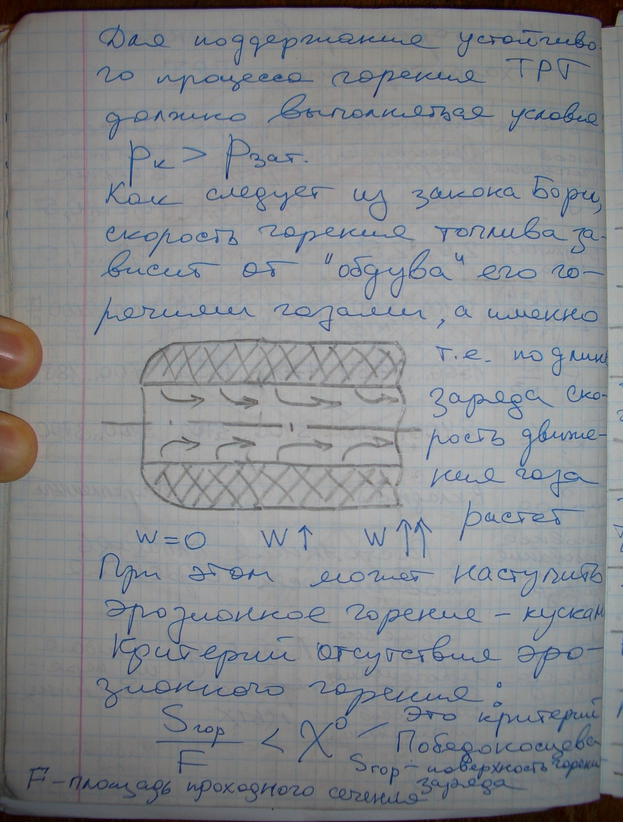 Для поддержания устойчиво-
го процесса горения ТРТ
должно выполняться условие
Pк > Pзат.
Как следует из закона Бори,
скорость горения топлива за-
висит от "обдува" его го-
рячими газами, а именно
т.е. по длине
заряда ско-
рость движе-
ния газа
растет
W=0 W↑ W↑↑
При этом может наступить
эрозионное горение – кусками
Критерий отсутствия эро-
зионного горения:
Sгор/F < χ⁰ – Это критерий
Победоносцева
Sгор – поверхность горения
заряда
F – площадь проходного сечения